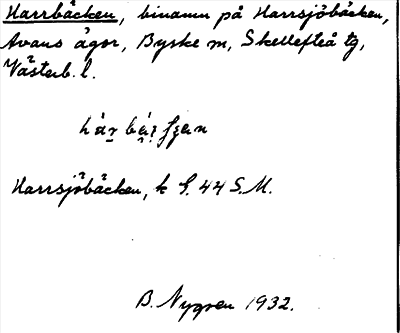 Harrbäcken, binamn på Harrsjöbäcken,
Avans ägor, Byske sn, Skellefteå tg,
Västerb. l.
Harrsjöbäcken, k G. 44 S.M.
B. Nygren 1932.